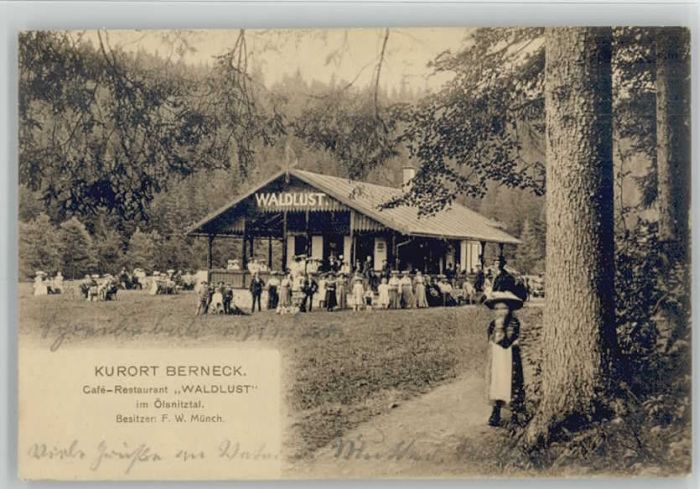 WALDLUST.
KURORT BERNECK.
Café-Restaurant „WALDLUST"
im Ölsnitztal.
Besitzer: F. W. Münch.
Viele Grüße an Vater Mutter